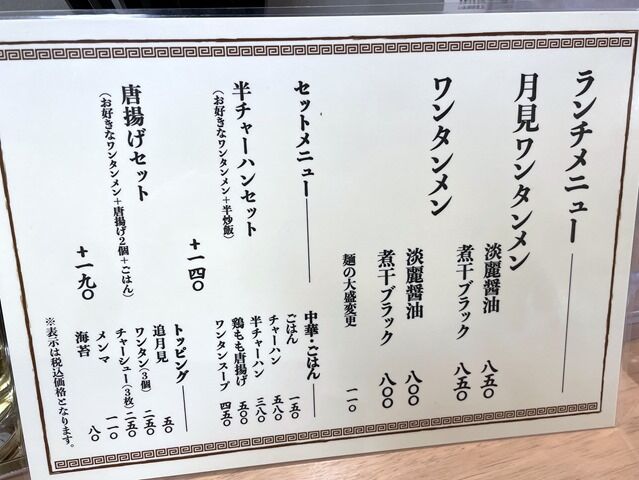 ランチメニュー
月見ワンタンメン
淡麗醤油 八五〇
煮干ブラック 八五〇
ワンタンメン
淡麗醤油 八〇〇
煮干ブラック 八〇〇
麺の大盛変更 一一〇
セットメニュー
半チャーハンセット
(お好きなワンタンメン+半炒飯)
+一四〇
唐揚げセット
(お好きなワンタンメン+唐揚げ2個+ごはん)
+一九〇
中華・ごはん
ごはん 一五〇
チャーハン 五八〇
半チャーハン 三八〇
鶏もも唐揚げ 五〇〇
ワンタンスープ 四五〇
トッピング
追月見 五〇
ワンタン(3個) 二五〇
チャーシュー(3枚) 二五〇
メンマ 一一〇
海苔 八〇
※表示は税込価格となります。